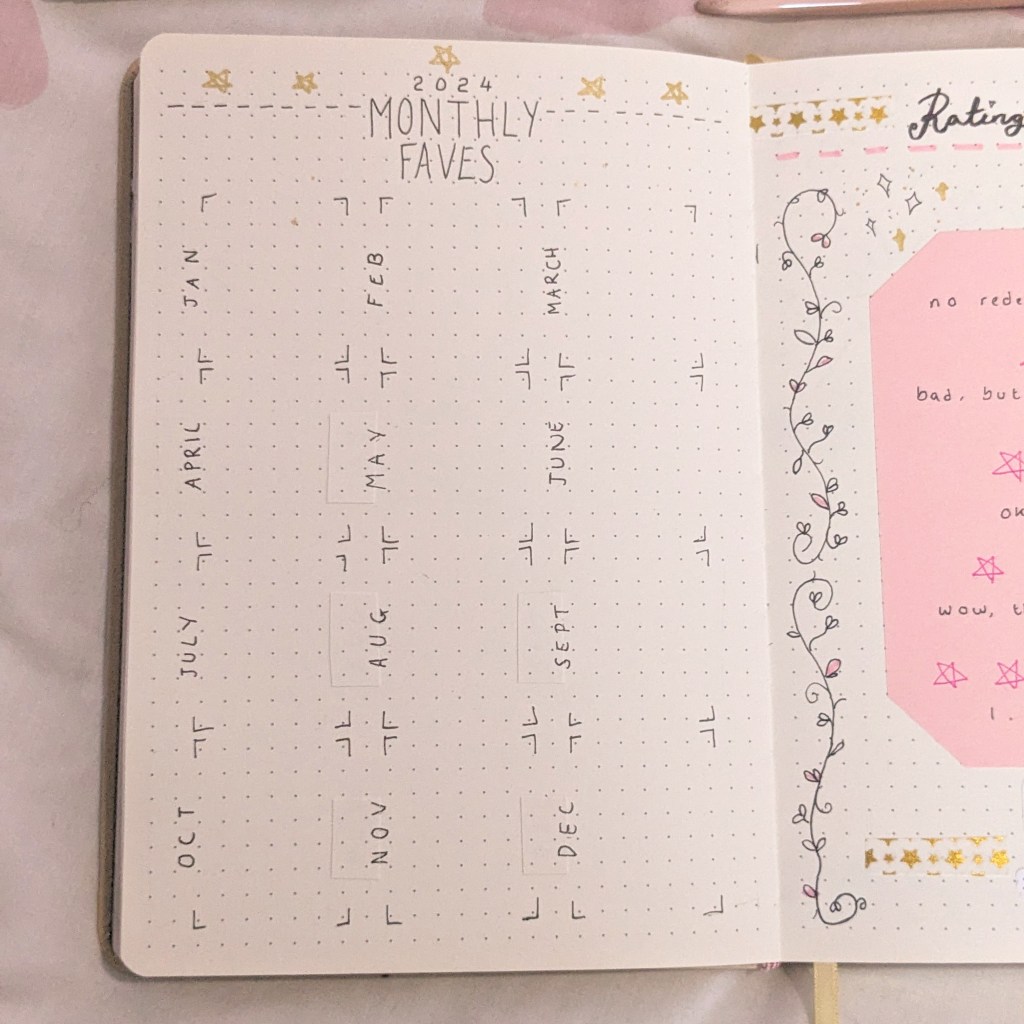 2024
MONTHLY
FAVES
JAN
FEB
MARCH
APRIL
MAY
JUNE
JULY
AUG
SEPT
OCT
NOV
DEC
Rating
no rede
bad, but
ok
wow, t
I.